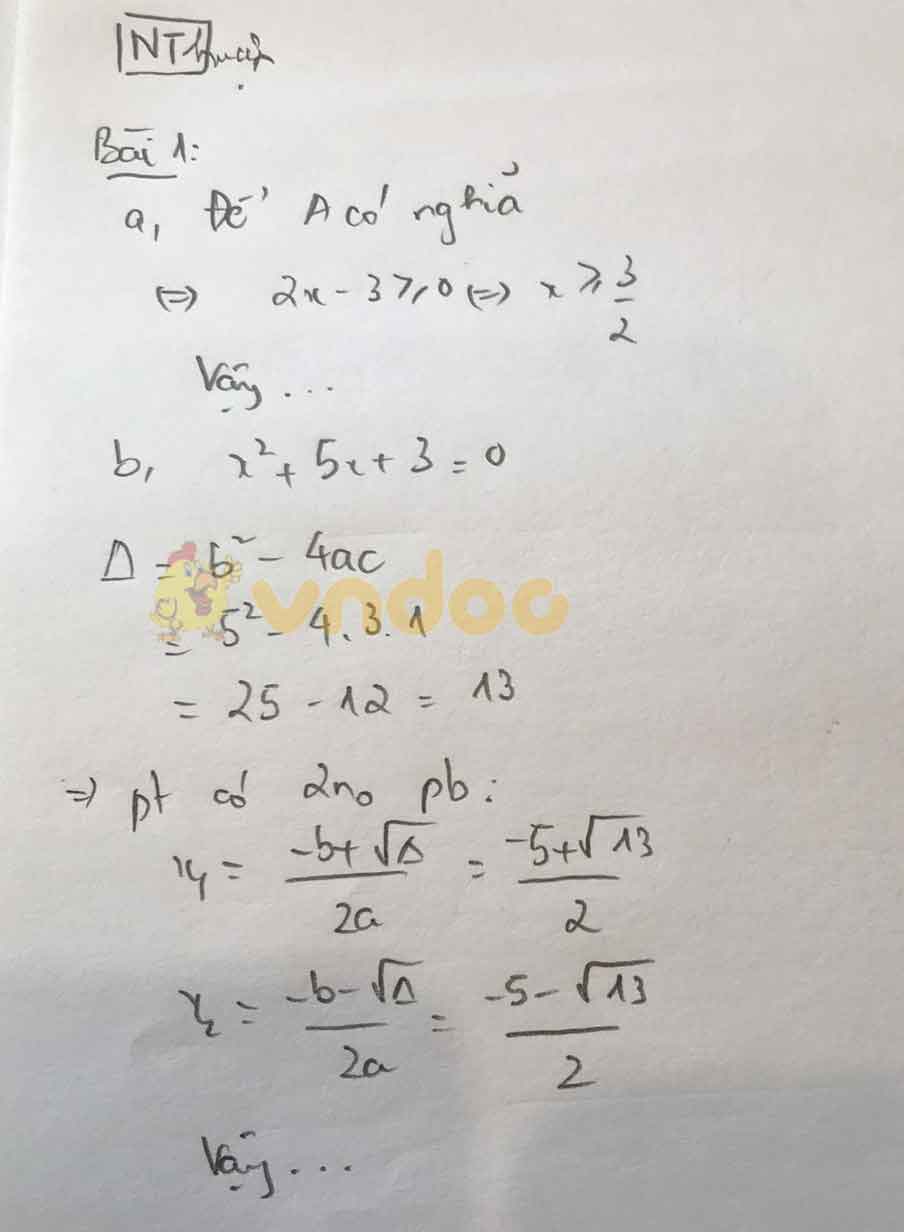 NThuận
Bài 1:
a, Để A có nghĩa
⇔ 2x - 3 ≥ 0 ⇔ x ≥ 3/2
Vậy ...
b, x² + 5x + 3 = 0
Δ = b² - 4ac
vndoc
= 5² - 4.3.1
= 25 - 12 = 13
⇒ pt có 2no pb:
x₁ = (-b+√Δ)/2a = (-5+√13)/2
x₂ = (-b-√Δ)/2a = (-5-√13)/2
Vậy ...